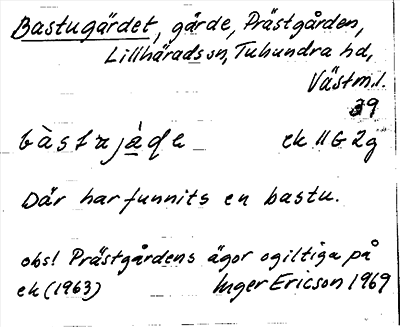 Bastugärdet, gärde, Prästgården,
Lillhärads sn, Tuhundra hd,
Västml.
39
ek 11G 2g
Där har funnits en bastu.
obs! Prästgårdens ägor ogiltiga på
ek (1963) Inger Ericson 1969